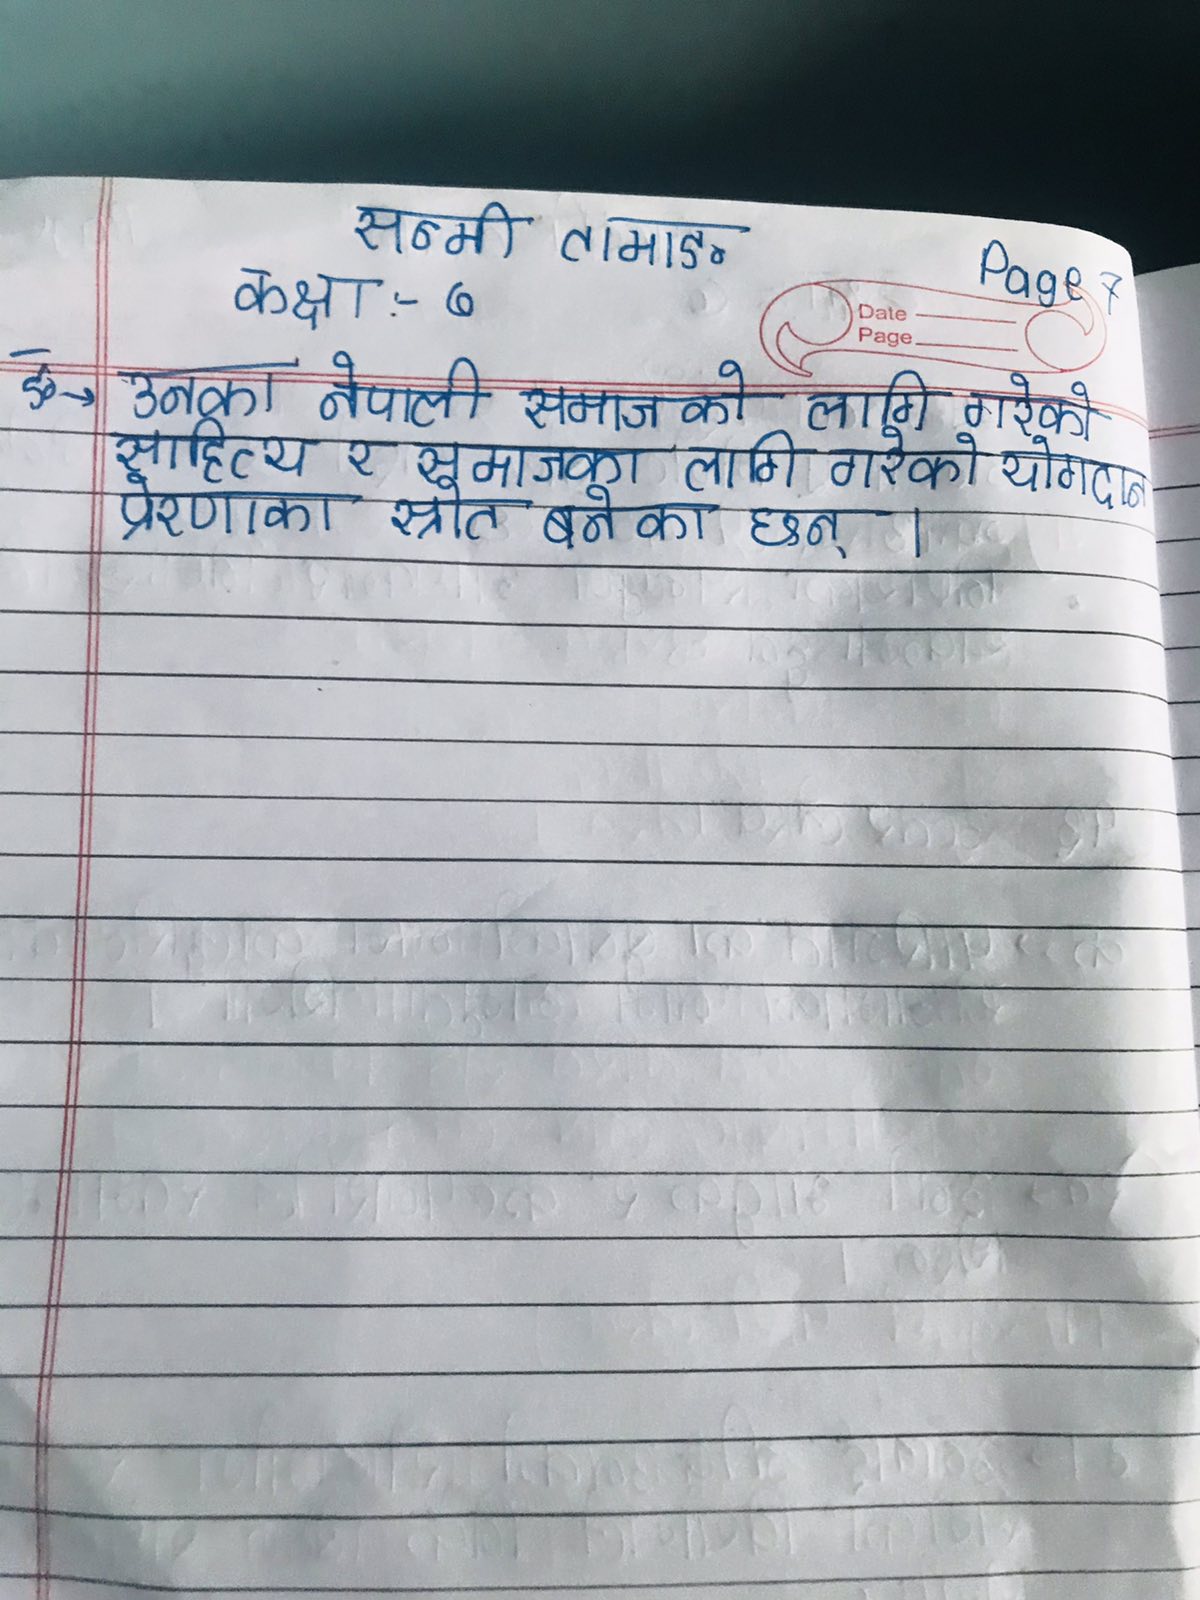 सन्मी तामाङ
Page 7
कक्षा :- ७
Date
Page
ङ→ उनका नेपाली समाजको लागि गरेको
साहित्य र समाजका लागि गरेको योगदान
प्रेरणाका स्रोत बनेका छन् ।